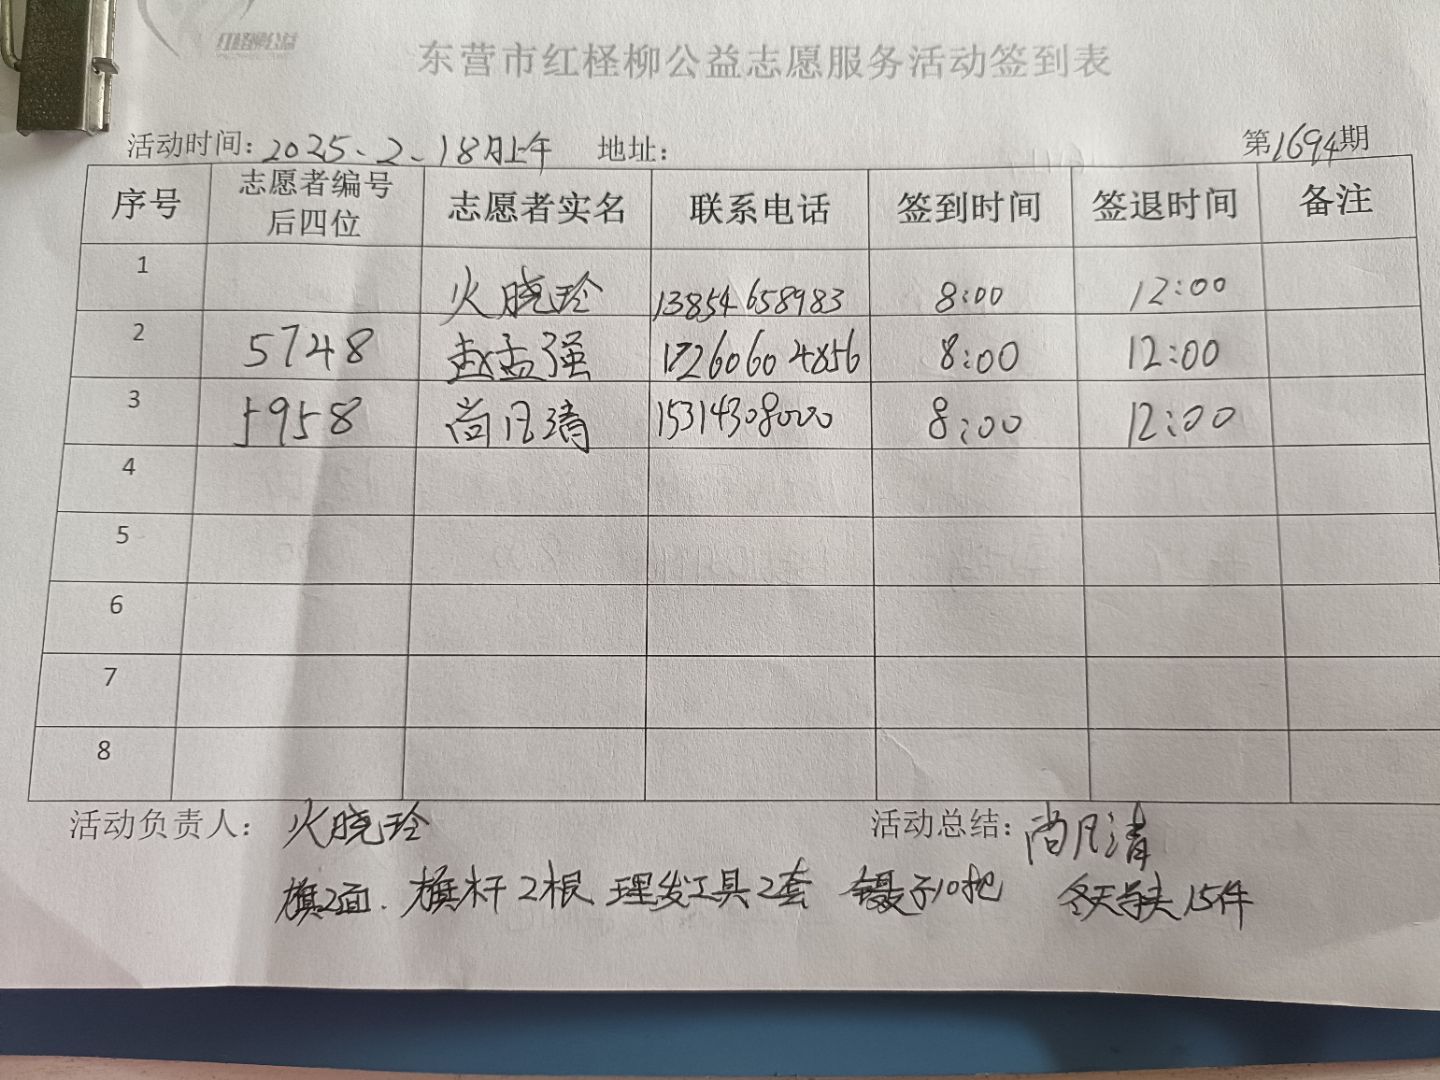 东营市红柽柳公益志愿服务活动签到表
活动时间：2025、2、18月上午 地址： 第1694期
序号 志愿者编号后四位 志愿者实名 联系电话 签到时间 签退时间 备注
1 火晓玲 13854658983 8:00 12:00
2 5748 赵孟强 17260604856 8:00 12:00
3 5958 尚月清 15314308000 8:00 12:00
4
5
6
7
8
活动负责人：火晓玲 活动总结：尚月清
旗2面、旗杆2根 理发工具2套 镊子10把 冬天 15件